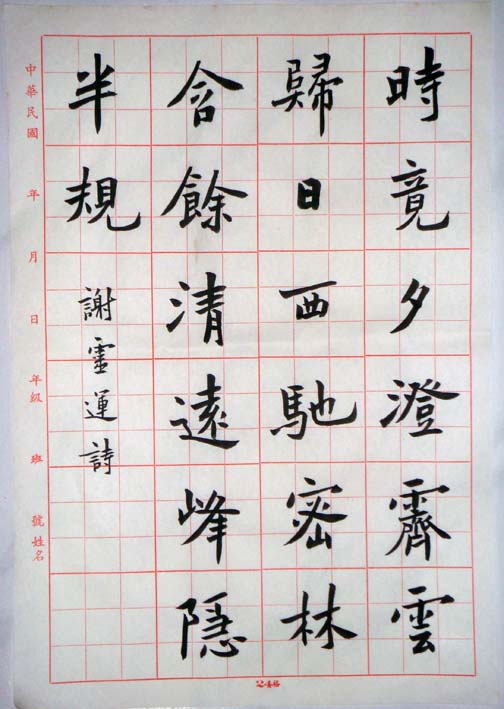 時竟夕澄霽雲
歸日西馳密林
含餘清遠峰隱
半規
謝靈運詩
中華民國 年 月 日 年級 班 號姓名
246